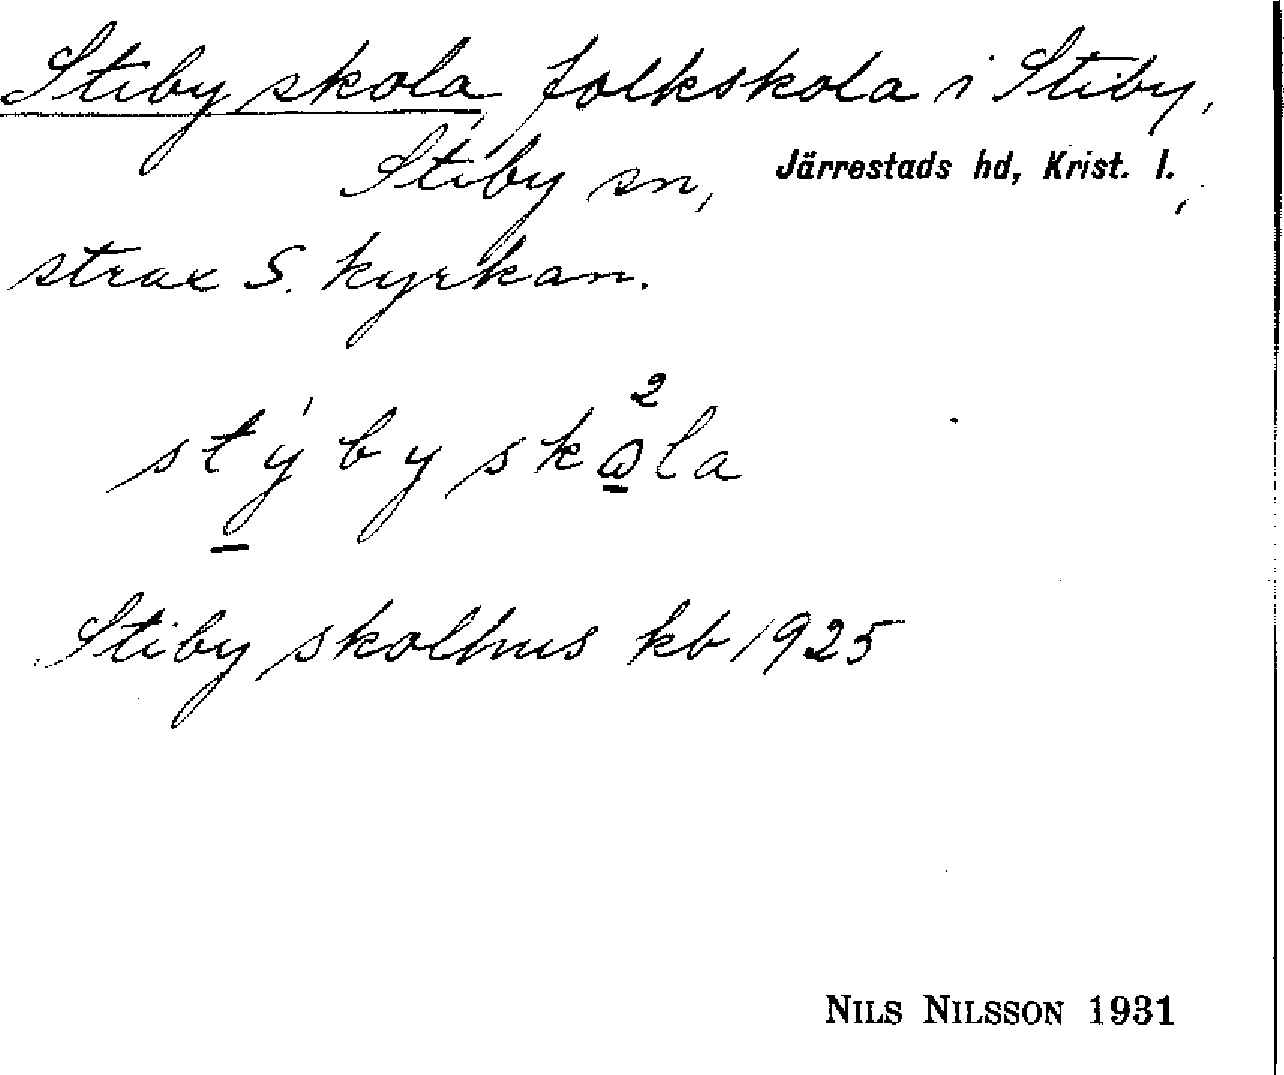 Stiby skola, folkskola i Stiby,
Stiby sn, Järrestads hd, Krist. l.,
strax S. kyrkan.
stýby skω̲²la
Stiby skolhus kb 1925
NILS NILSSON 1931